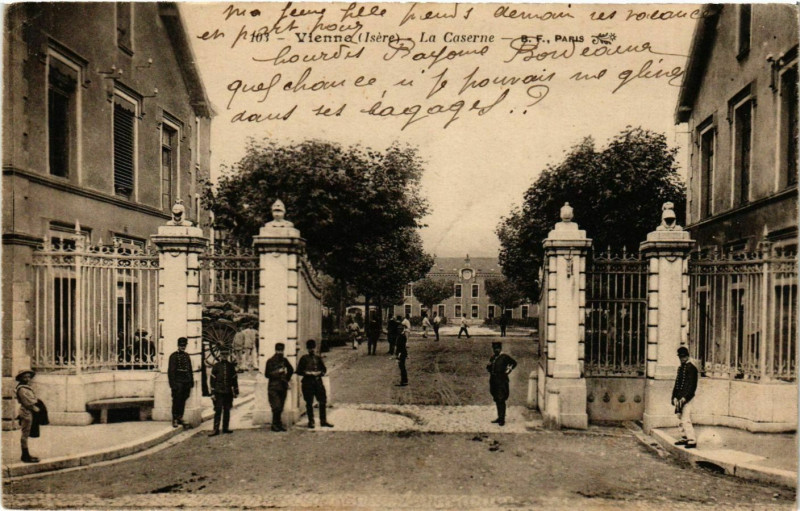 Ma Jeune fille prends demain ses vacances
et part pour
101 - Vienne (Isère) - La Caserne - B. F., PARIS
Lourdes Bayonne Bordeaux
quel chance si je pouvais me glisser
dans ses bagages ?